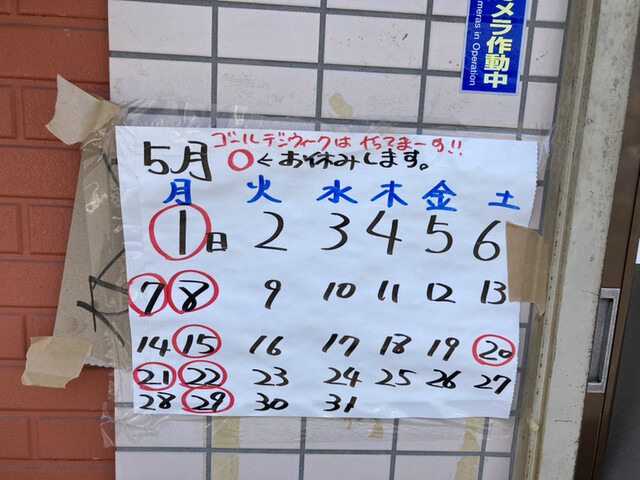 メラ作動中
meras in Operation
ゴールデンウィークは やってまーす!!
5月 ○←お休みします。
月 火 水 木 金 土
1日 2 3 4 5 6
7 8 9 10 11 12 13
14 15 16 17 18 19 20
21 22 23 24 25 26 27
28 29 30 31